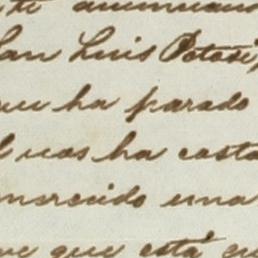 anunciaus
San Luis Potosí,
ha parado
nos ha costa
merecido una
que está